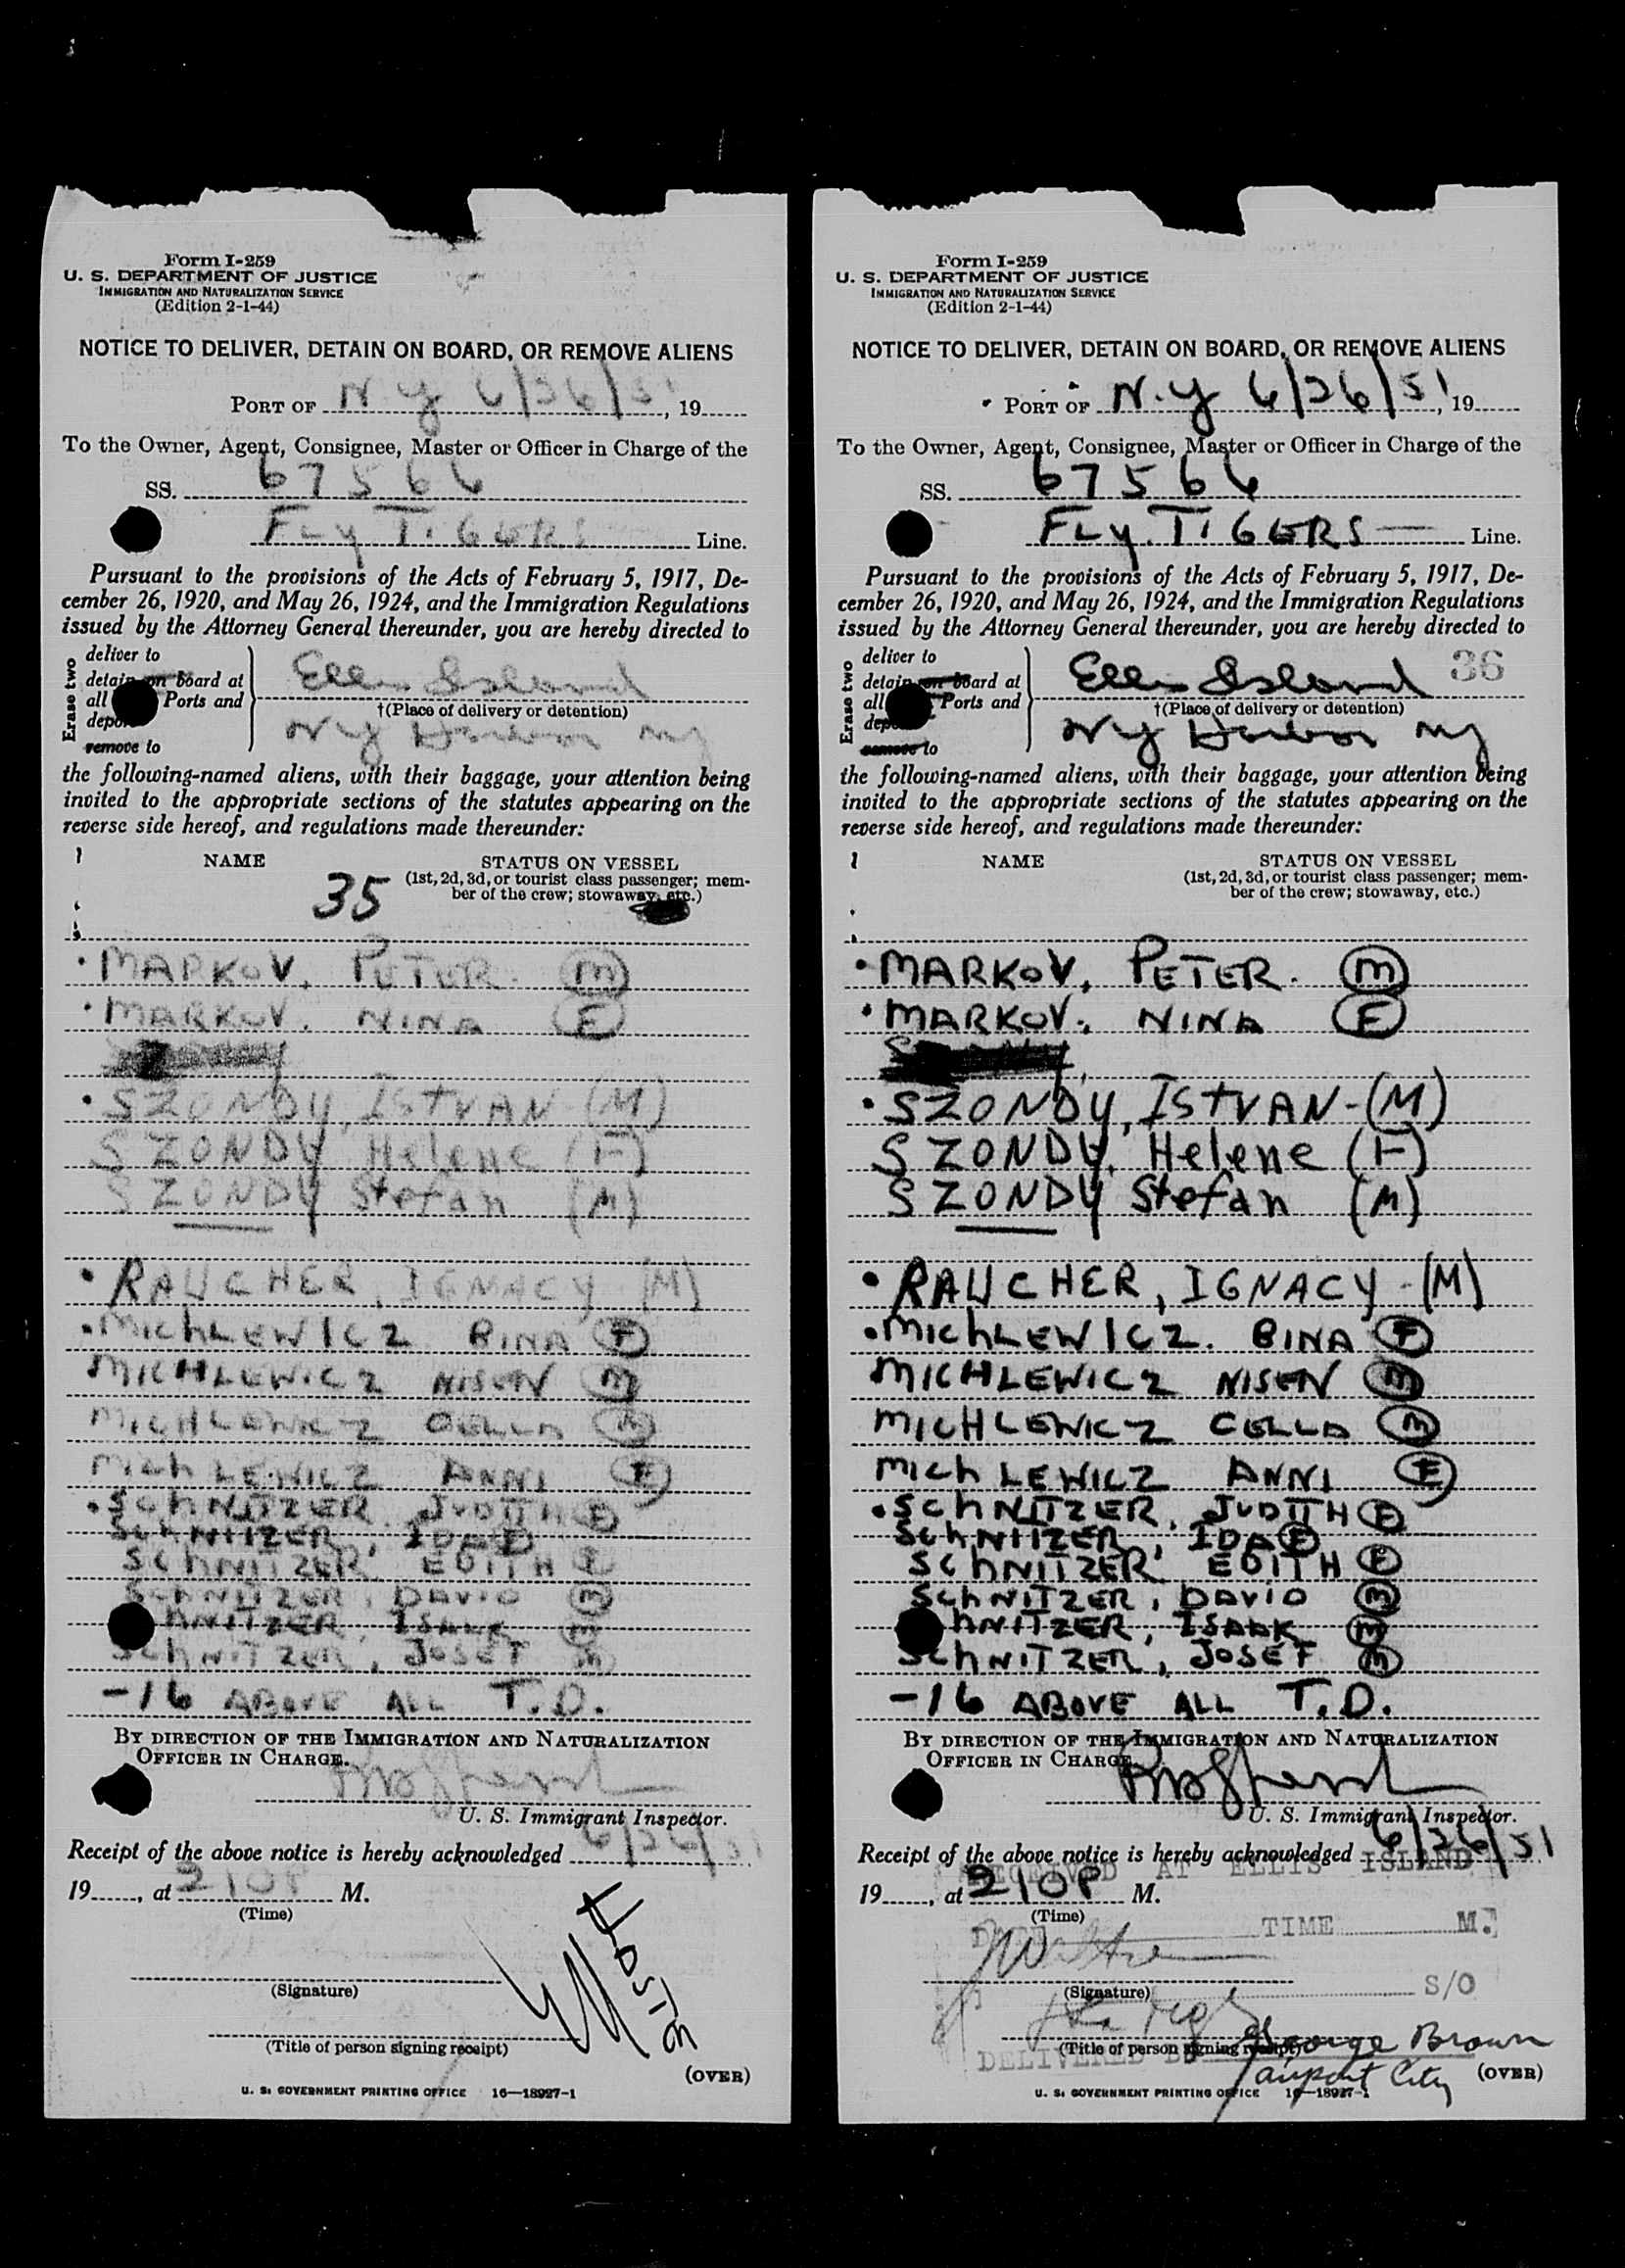 Form I-259
U. S. DEPARTMENT OF JUSTICE
IMMIGRATION AND NATURALIZATION SERVICE
(Edition 2-1-44)
NOTICE TO DELIVER, DETAIN ON BOARD, OR REMOVE ALIENS
PORT OF N y 6/26/51, 19
To the Owner, Agent, Consignee, Master or Officer in Charge of the
SS. 67566
FLY TIGERS Line.
Pursuant to the provisions of the Acts of February 5, 1917, De-
cember 26, 1920, and May 26, 1924, and the Immigration Regulations
issued by the Attorney General thereunder, you are hereby directed to
Erase two
deliver to
detain on board at
all Ports and
remove to
Ellis Island
†(Place of delivery or detention)
NY Harbor NY
the following-named aliens, with their baggage, your attention being
invited to the appropriate sections of the statutes appearing on the
reverse side hereof, and regulations made thereunder:
NAME
STATUS ON VESSEL
35
(1st, 2d, 3d, or tourist class passenger; mem-
ber of the crew; stowaway, etc.)
MARKOV, PETER. M
MARKOV. NINA F
SZONDY, ISTVAN-(M)
SZONDY Helene (F)
SZONDY Stefan (M)
RAUCHER, IGNACY (M)
MICHLEWICZ BINA F
MICHLEWICZ NISEN M
MICHLEWICZ CELLA M
MICHLEWICZ ANNI F
SCHNITZER, JUDITH F
SCHNITZER, IDA F
SCHNITZER, EDITH F
SCHNITZER, DAVID M
HNITZER, ISAAK M
SCHNITZER, JOSEF M
-16 ABOVE ALL T.D.
BY DIRECTION OF THE IMMIGRATION AND NATURALIZATION
OFFICER IN CHARGE.
U. S. Immigrant Inspector.
Receipt of the above notice is hereby acknowledged 6/26/51
19, at 210P M.
(Time)
(Signature)
(Title of person signing receipt)
(OVER)
U. S. GOVERNMENT PRINTING OFFICE 16—18927-1
Form I-259
U. S. DEPARTMENT OF JUSTICE
IMMIGRATION AND NATURALIZATION SERVICE
(Edition 2-1-44)
NOTICE TO DELIVER, DETAIN ON BOARD, OR REMOVE ALIENS
PORT OF N.Y 6/26/51, 19
To the Owner, Agent, Consignee, Master or Officer in Charge of the
SS. 67566
FLY. TIGERS — Line.
Pursuant to the provisions of the Acts of February 5, 1917, De-
cember 26, 1920, and May 26, 1924, and the Immigration Regulations
issued by the Attorney General thereunder, you are hereby directed to
Erase two
deliver to
detain on board at
all Ports and
remove to
Ellis Island 36
†(Place of delivery or detention)
NY Harbor NY
the following-named aliens, with their baggage, your attention being
invited to the appropriate sections of the statutes appearing on the
reverse side hereof, and regulations made thereunder:
NAME
STATUS ON VESSEL
(1st, 2d, 3d, or tourist class passenger; mem-
ber of the crew; stowaway, etc.)
MARKOV, PETER. M
MARKOV, NINA F
SZONDY, ISTVAN-(M)
SZONDY, Helene (F)
SZONDY Stefan (M)
RAUCHER, IGNACY-(M)
MICHLEWICZ. BINA F
MICHLEWICZ NISEN M
MICHLEWICZ CELLA M
MICHLEWICZ ANNI F
SCHNITZER, JUDITH F
SCHNITZER, IDA F
SCHNITZER, EDITH F
SCHNITZER, DAVID M
HNITZER, ISAAK M
SCHNITZER, JOSEF M
-16 ABOVE ALL T.D.
BY DIRECTION OF THE IMMIGRATION AND NATURALIZATION
OFFICER IN CHARGE
U. S. Immigrant Inspector.
Receipt of the above notice is hereby acknowledged 6/26/51
RECEIVED AT ELLIS ISLAND
19, at 210P M.
(Time)
TIME M.
(Signature)
S/O
George Brown
(Title of person signing receipt)
DELIVERED
airport City
(OVER)
U. S. GOVERNMENT PRINTING OFFICE 16—18927-1